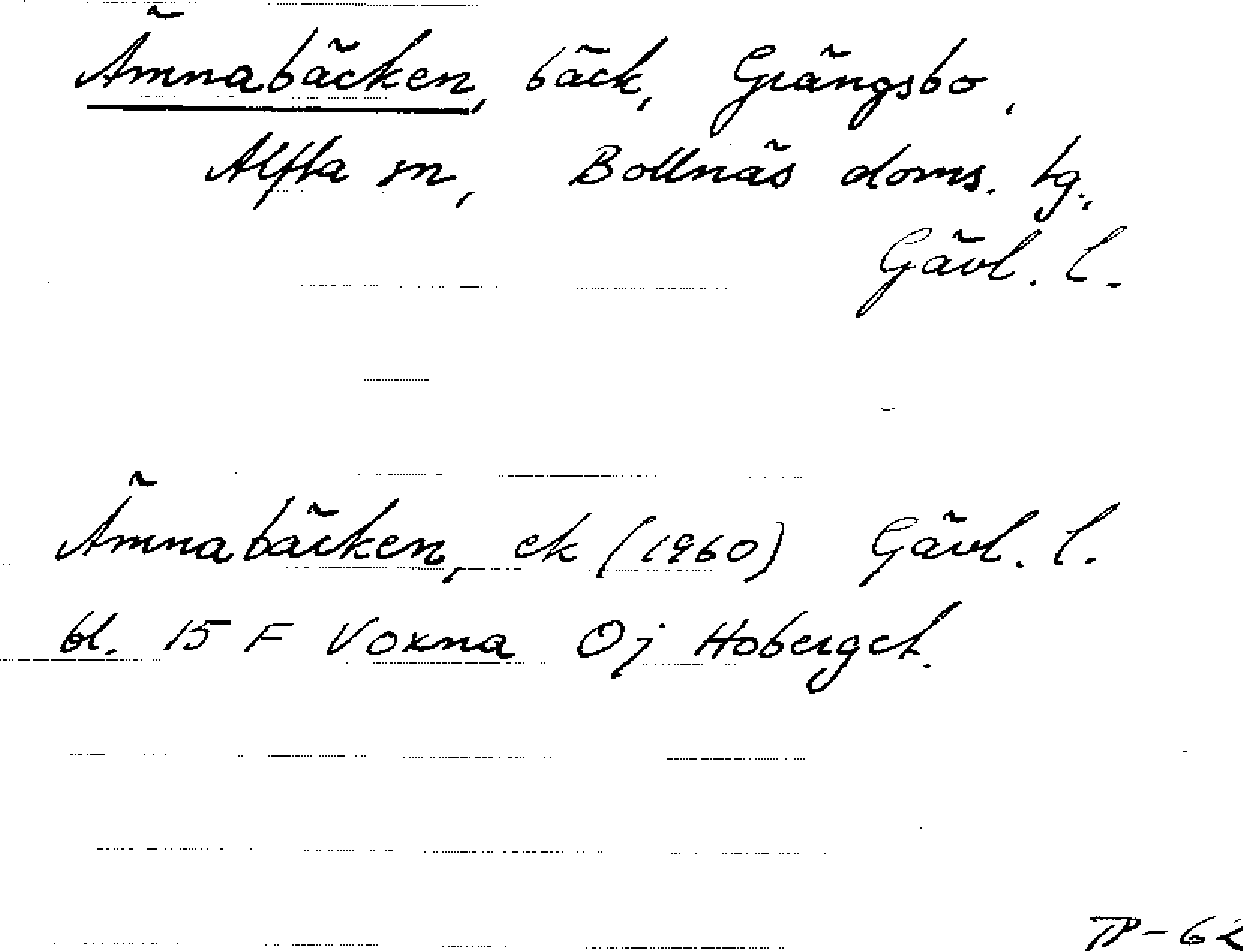 Ämnabäcken, bäck, Grängsbo,
Alfta sn, Bollnäs doms. tg.,
Gävl. l.
Ämnabäcken, ek (1960) Gävl. l.
bl. 15 F Voxna Oj
TP-62